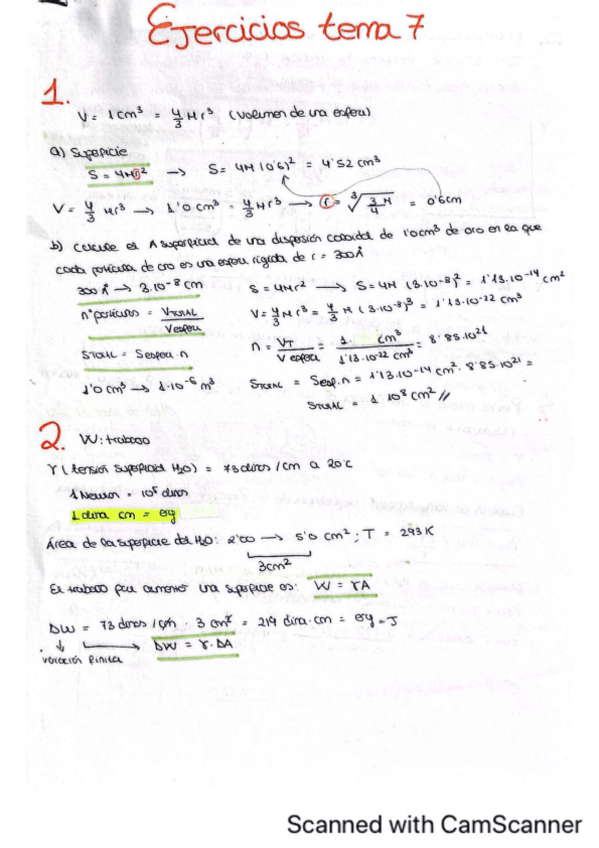 Ejercicios tema 7
1.
V = 1 cm³ = 4/3 πr³ (volumen de una esfera)
a) Superficie
S = 4πr² → S = 4π (0'6)² = 4'52 cm³
V = 4/3 πr³ → 1'0 cm³ = 4/3 πr³ → r = ∛(3π/4) = 0'6cm
b) Calcule el A superficial de una dispersión coloidal de 1'0cm³ de oro en la que
cada partícula de oro es una esfera rígida de r = 300Å
300 Å → 3·10⁻⁸ cm
S = 4πr² → S = 4π (3·10⁻⁸)² = 1'13·10⁻¹⁴ cm²
nº partículas = VTOTAL / Vesfera
V = 4/3 πr³ = 4/3 π (3·10⁻⁸)³ = 1'13·10⁻²² cm³
STOTAL = Sesfera · n
n = VT / Vesfera = 1 cm³ / 1'13·10⁻²² cm³ = 8'85·10²¹
1'0 cm³ → 1·10⁻⁶ m³
STOTAL = Sesf. n = 1'13·10⁻¹⁴ cm² · 8'85·10²¹ =
STOTAL = 1 10⁸ cm² //
2. W: trabajo
γ (tensión superficial H₂O) = 73 dinas/cm a 20°C
1 Newton = 10⁵ dinas
1 dina cm = erg
Área de la superficie del H₂O: 2'00 → 5'0 cm²; T = 293K
3cm²
El trabajo para aumentar una superficie es: W = γA
ΔW = 73 dinas/cm · 3 cm² = 219 dina·cm = erg = J
ΔW = γ·ΔA
variación finita
Scanned with CamScanner